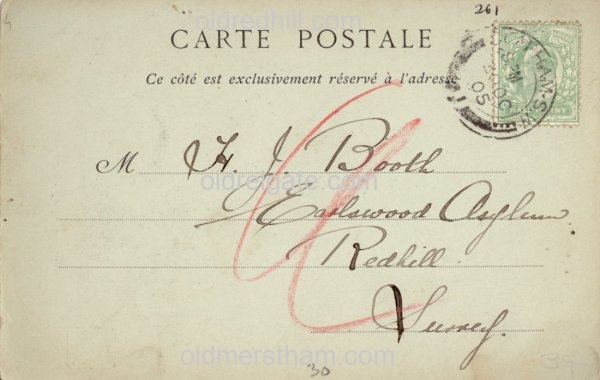 oldredhill.com
261
CARTE POSTALE
Ce côté est exclusivement réservé à l'adresse
M H. J. Booth
oldreigate.com
Earlswood Asylum
Redhill
Surrey.
oldmerstham.com
30